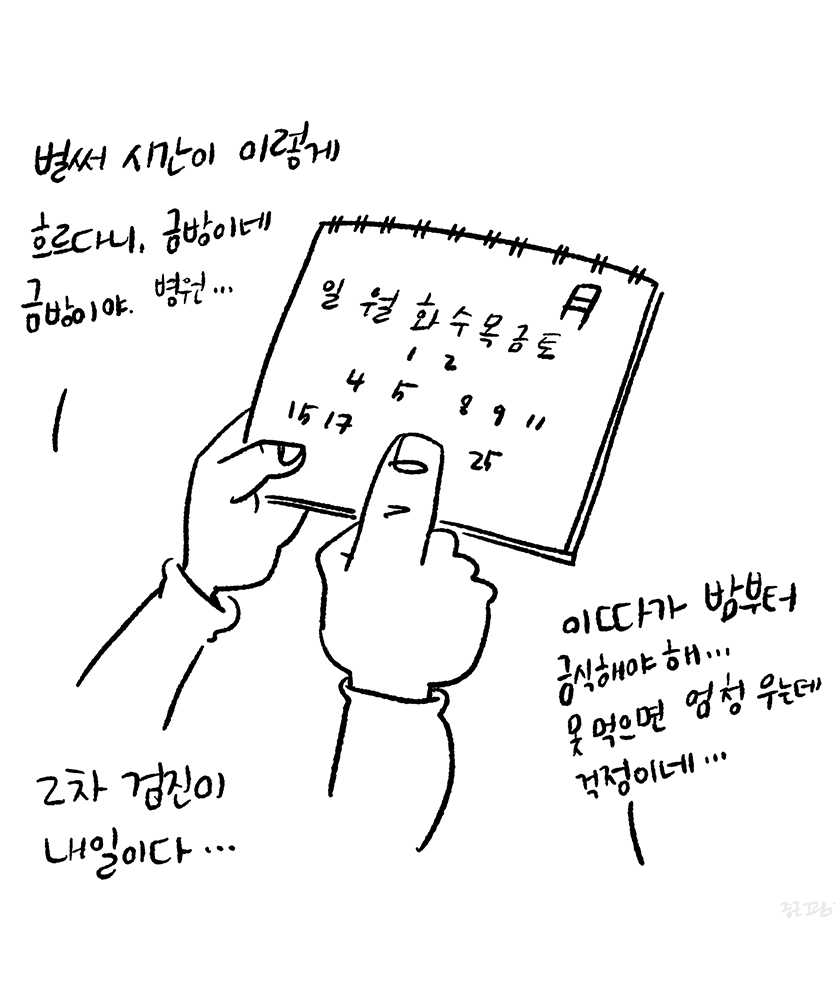 벌써 시간이 이렇게
흐르다니, 금방이네
금방이야. 병원...
일 월 화 수 목 금 토
1 2
4 5 8 9 11
15 17
25
이따가 밤부터
금식해야 해...
못 먹으면 엄청 우는데
걱정이네...
2차 검진이
내일이다...